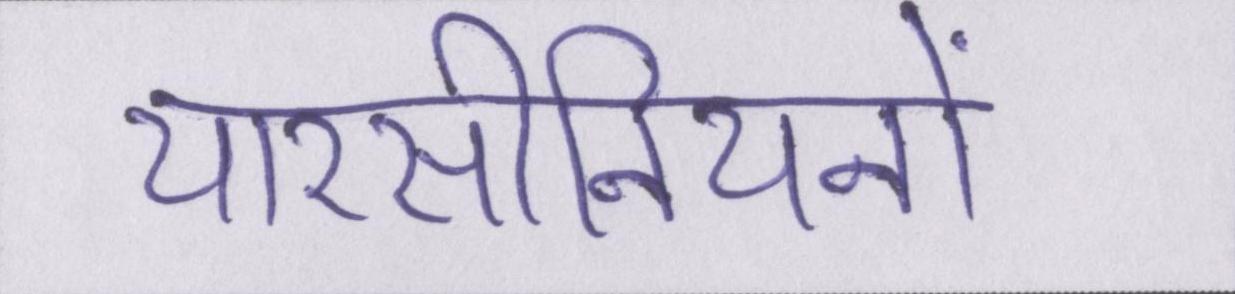 यारसीनियनों